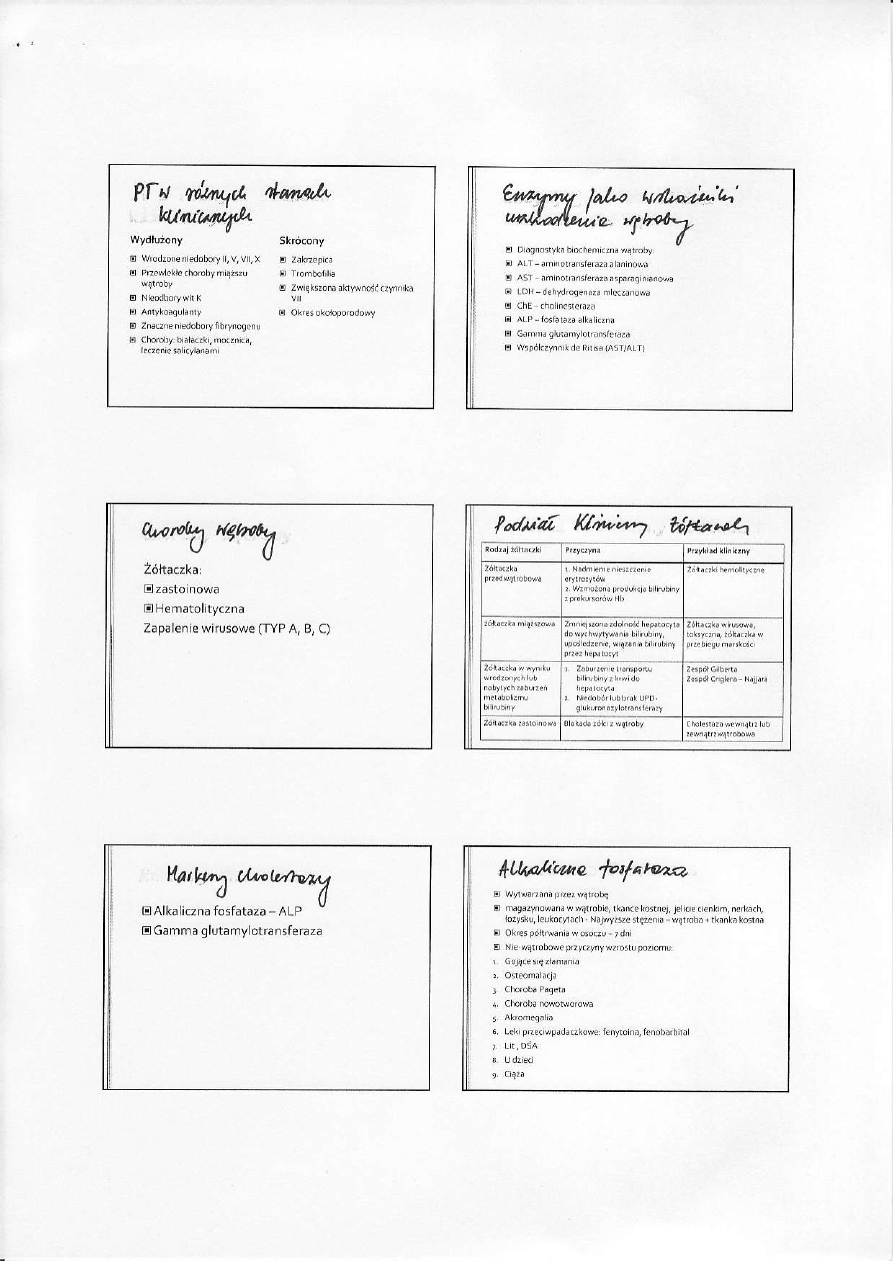 PT w różnych stanach
klinicznych
Wydłużony
Wrodzone niedobory II, V, VII, X
Przewlekłe choroby miąższu
wątroby
Nieodbory wit K
Antykoagulanty
Znaczne niedobory fibrynogenu
Choroby: białaczki, mocznica,
leczenie salicylanami
Skrócony
Zakrzepica
Trombofilia
Zwiększona aktywność czynnika
VII
Okres okołoporodowy
Enzymy jako wskaźniki
uszkodzenie wątroby
Diagnostyka biochemiczna wątroby:
ALT – aminotransferaza alaninowa
AST – aminotransferaza asparaginianowa
LDH – dehydrogenaza mleczanowa
ChE – cholinesteraza
ALP – fosfataza alkaliczna
Gamma glutamylotransferaza
Współczynnik de Ritisa (AST/ALT)
Choroby wątroby
Żółtaczka:
zastoinowa
Hematolityczna
Zapalenie wirusowe (TYP A, B, C)
Podział kliniczny żółtaczek
Rodzaj żółtaczki Przyczyna Przykład kliniczny
Żółtaczka
przedwątrobowa
1. Nadmierne niszczenie
erytrozytów
2. Wzmożona produkcja bilirubiny
z prekursorów Hb
Żółtaczki hemolityczne
żółtaczka miąższowa
Zmniejszona zdolność hepatocyta
do wychwytywania bilirubiny,
upośledzenie, wiązania bilirubiny
przez hepatocyt
Żółtaczka wirusowa,
toksyczna, żółtaczka w
przebiegu marskości
Żółtaczka w wyniku
wrodzonych lub
nabytych zaburzeń
metabolizmu
bilirubiny
1. Zaburzenie transportu
bilirubiny z krwi do
hepatocyta
2. Niedobór lub brak UPD-
glukuronozylotransferazy
Zespół Gilberta
Zespół Criglera – Najjara
Żółtaczka zastoinowa
Blokada żółci z wątroby
Cholestaza wewnątrz lub
zewnątrzwątrobowa
Markery cholestazy
Alkaliczna fosfataza – ALP
Gamma glutamylotransferaza
Alkaliczna fosfataza
Wytwarzana przez wątrobę
magazynowana w wątrobie, tkance kostnej, jelicie cienkim, nerkach,
łożysku, leukocytach - Najwyższe stężenia – wątroba + tkanka kostna
Okres półtrwania w osoczu – 7 dni
Nie-wątrobowe przyczyny wzrostu poziomu:
1. Gojące się złamania
2. Osteomalacja
3. Choroba Pageta
4. Choroba nowotworowa
5. Akromegalia
6. Leki przeciwpadaczkowe: fenytoina, fenobarbital
7. Lit, DSA
8. U dzieci
9. Ciąża